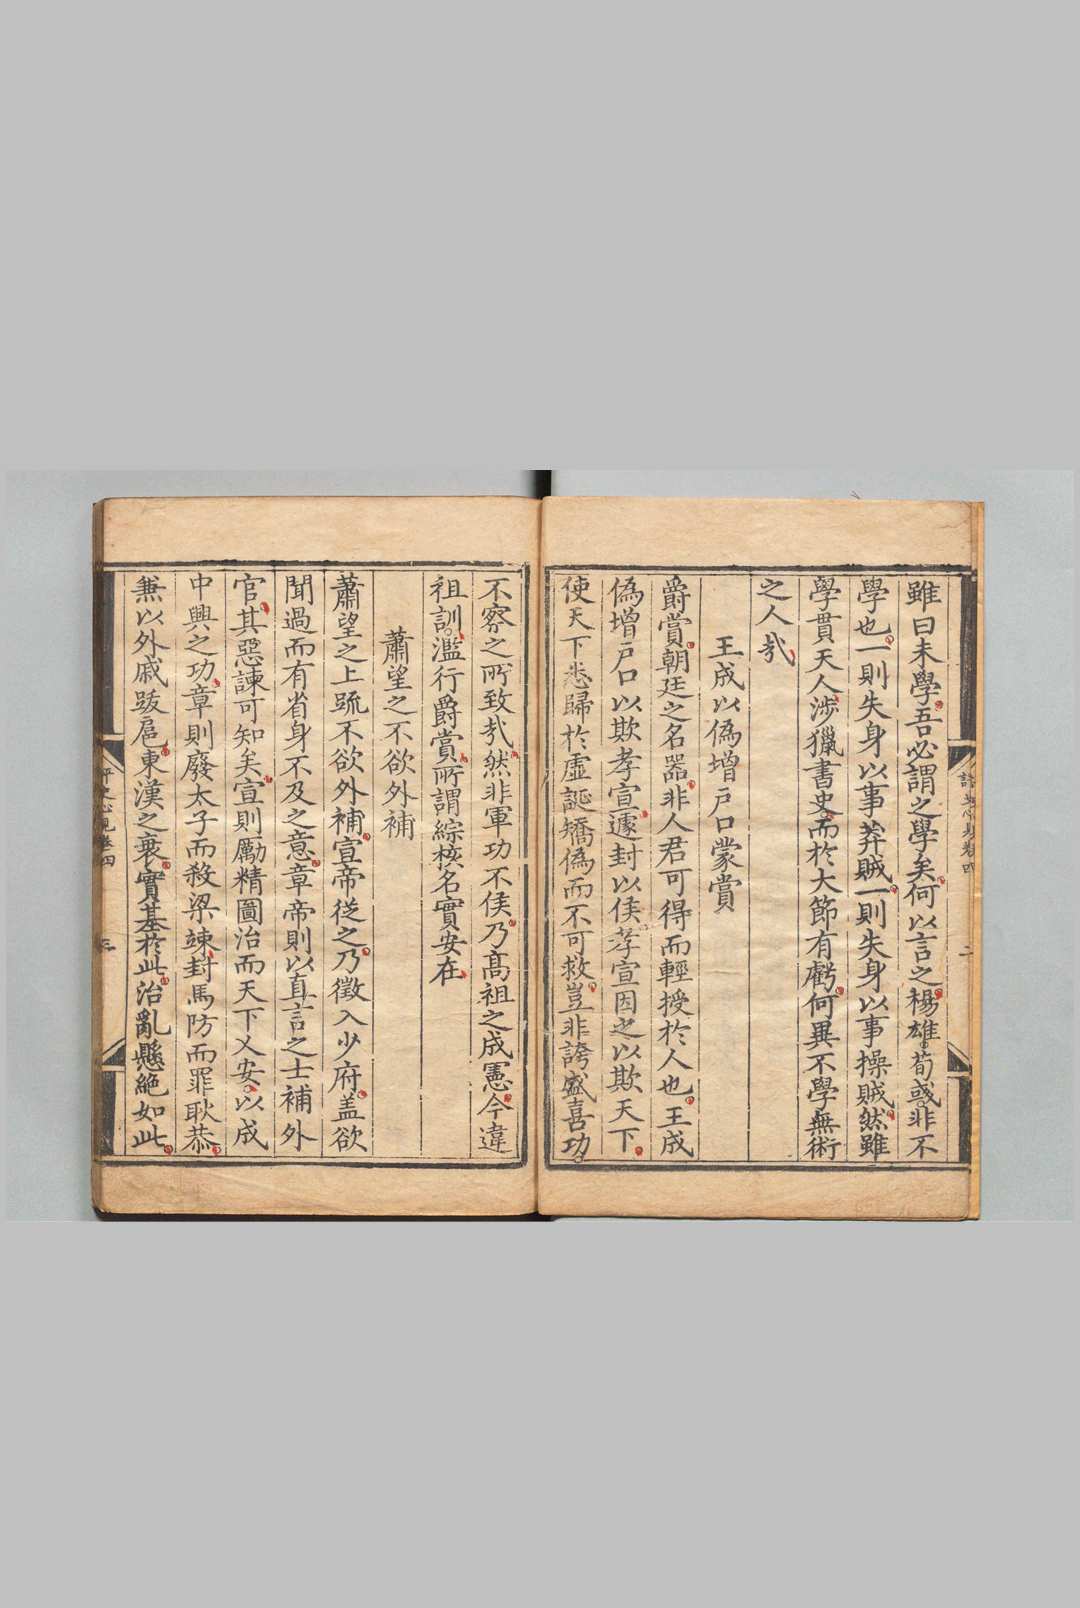 雖曰未學吾必謂之學矣何以言之楊雄荀彧非不
學也一則失身以事莽賊一則失身以事操賊然雖
學貫天人涉獵書史而於大節有虧何異不學無術
之人㢤
王成以偽增戶口蒙賞
爵賞朝廷之名器非人君可得而輕授於人也王成
偽增戶口以欺孝宣遽封以侯孝宣因之以欺天下
使天下悉歸於虛誕矯偽而不可救豈非誇盛喜功
不察之所致㢤然非軍功不侯乃髙祖之成憲今違
祖訓濫行爵賞所謂綜核名實安在
蕭望之不欲外補
蕭望之上䟽不欲外補宣帝從之乃徵入少府盖欲
聞過而有省身不及之意章帝則以直言之士補外
官其惡諫可知矣宣則勵精圖治而天下乂安以成
中興之功章則廢太子而殺梁竦封馬防而罪耿恭
兼以外戚跋扈東漢之衰實基於此治亂懸絕如此